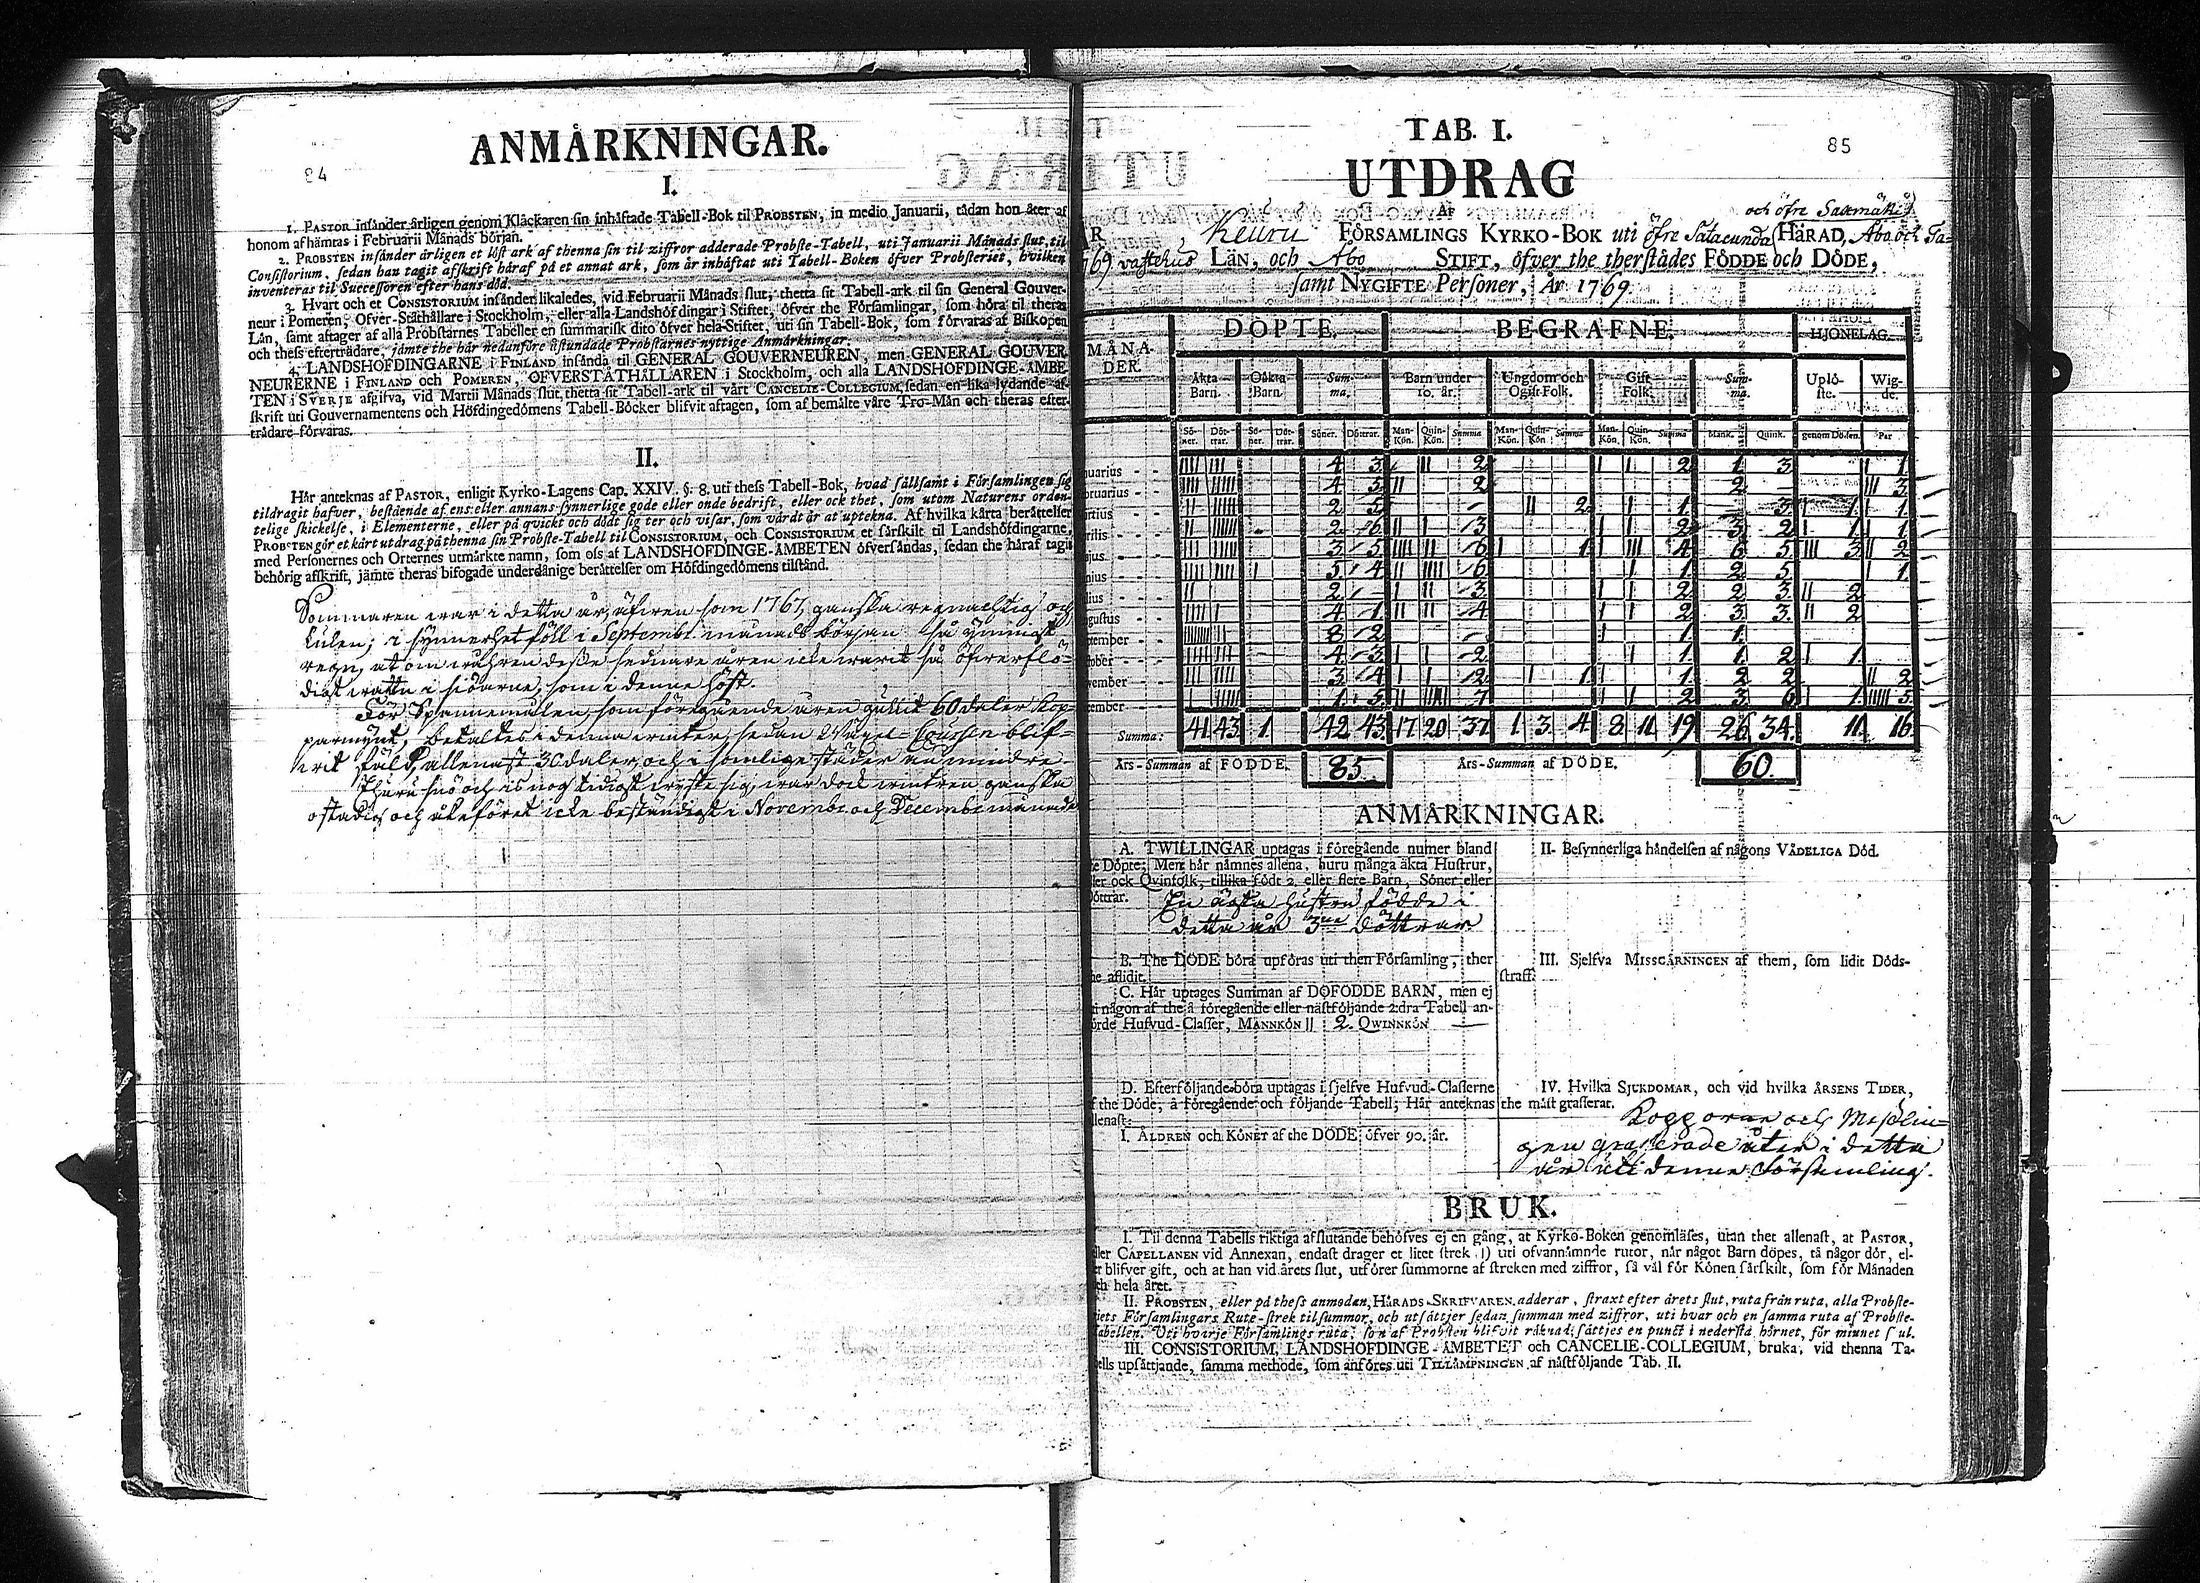 84
ANMÅRKNINGAR.
I.
1. PASTOR insånder årligen genom Klåckaren sin inhåftade Tabell-Bok til PROBSTEN, in medio Januarii, tådan hon åter af
honom afhåmtas i Februarii Månads början.
2. PROBSTEN insånder årligen et löst ark af thenna sin til ziffror adderade Probste-Tabell, uti Januarii Månads slut, til
Consistorium, sedan han tagit afskrift håraf på et annat ark, som år inhåftat uti Tabell-Boken öfver Probsteriet, hvilken
inventeras til Successoren efter hans död.
3. Hvart och et CONSISTORIUM insånder likaledes, vid Februarii Månads slut, thetta sit Tabell-ark til sin General Gouver-
neur i Pomeren, Ofver-Ståthållare i Stockholm, eller alla Landshöfdingar i Stiftet, öfver the Församlingar, som höra til theras
Lån, samt aftager af alla Probstarnes Tabeller en summarisk dito öfver hela Stiftet, uti sin Tabell-Bok, som förvaras af Biskopen
och thess eftertrådare, jåmte the hår nedanföre åstundade Probstarnes nyttige Anmårkningar.
4. LANDSHÖFDINGARNE i FINLAND insånda til GENERAL GOUVERNEUREN, men GENERAL GOUVER-
NEURERNE i FINLAND och POMEREN, ÖFVERSTÅTHÅLLAREN i Stockholm, och alla LANDSHÖFDINGE-ÅMBE-
TEN i SVERJE afgifva, vid Martii Månads slut, thetta sit Tabell-ark til vårt CANCELIE-COLLEGIUM, sedan en lika lydande af-
skrift uti Gouvernamentens och Höfdingedömens Tabell-Böcker blifvit aftagen, som af bemålte våre Tro-Mån och theras efter-
trådare förvaras.
II.
Hår anteknas af PASTOR, enligit Kyrko-Lagens Cap. XXIV. §. 8. uti thess Tabell-Bok, hvad sållsamt i Församlingen sig
tildragit hafver, bestående af ens eller annans synnerlige gode eller onde bedrift, eller ock thet, som utom Naturens orden-
telige skickelse, i Elementerne, eller på qvickt och dödt sig ter och visar, som vårdt år at uptekna. Af hvilka kårta beråttelser
PROBSTEN gör et kårt utdrag på thenna sin Probste-Tabell til CONSISTORIUM, och CONSISTORIUM et sårskilt til Landshöfdingarne,
med Personernes och Orternes utmårkte namn, som oss af LANDSHÖFDINGE-ÅMBETEN öfversåndas, sedan the håraf tagit
behörig afskrift, jåmte theras bifogade underdånige beråttelser om Höfdingedömens tilstånd.
Sommaren war i detta år, äfwen som 1767, ganska regnachtig och
kulen; i synnerhet föll i Septembr månads början så ymnigt
regn, at om wåhren desse sednare åren icke warit så öfwerflö-
digt watn i siöarne, som i denne höst.
För Spannemålen, som föregående åren gullit 60 daler Kop-
parmynt, betaltes i denna winter, sedan Wäxel-Coursen blif-
wit fäld, allenast 30 daler, och i somlige städer än mindre.
Ehuru snö och is nog tidigt wiste sig, war dock wintren ganska
ostadig och åkeföret icke beständigt i Novembr och Decembr månader
85
TAB. I.
UTDRAG
AF
och öfre Saxmäki
Keuru FÖRSAMLINGS KYRKO-BOK uti öfre Satacunda HÄRAD, Åbo och Ta-
vastehus LÅN, och Åbo STIFT, öfver the therstådes FÖDDE och DÖDE,
samt NYGIFTE Personer, År 1769
MÅNA-DER. DÖPTE. BEGRAFNE. HJONELAG.
Åkta Barn. Oåkta Barn. Summa. Barn under 10. år. Ungdom och Ogift Folk. Gift Folk. Summa. Uplöste. Wigde.
Söner. Döttrar. Söner. Döttrar. Söner. Döttrar. Mankön. Quinkön. Summa Mankön. Quinkön Summa Mankön. Quinkön. Summa Mank. Quink. genom Döden. Par
nuarius 4 3 2 2 1 3 1
bruarius 4 5 2 2 3
rtius 2 5 2 1 3 1 1
rilis 2 6 3 2 3 2 1 1
jus 3 5 6 1 4 6 5 3 2
nius 5 4 6 1 2 5 1
lius 2 3 2 2 3 2
gustus 4 1 4 2 3 3 2
ptember 8 2 1 1
tober 4 3 2 1 1 2 1
vember 3 4 2 1 1 2 2 2
cember 1 5 7 2 3 6 1 5
Summa: 41 43 1 42 43 17 20 37 1 3 4 8 11 19 26 34 11 16
Års-Summan af FÖDDE. 85. Års-Summan af DÖDE. 60.
ANMÅRKNINGAR.
A. TWILLINGAR uptagas i föregående numer bland
e Döpte; Men hår nåmnes allena, huru många åkta Hustrur,
ler ock Qvinfolk, tillika födt 2. eller flere Barn, Söner eller
öttrar. En ägta hustru födde i
detta år 3ne döttrar
B. The DÖDE böra upföras uti then Församling, ther
he aflidit.
C. Hår uptages Summan af DÖFÖDDE BARN, men ej
ti någon af the å föregående eller nåstföljande 2:dra Tabell an-
örde Hufvud-Classer, MANNKÖN || 2. QWINNKÖN —
D. Efterföljande böra uptagas i sjelfve Hufvud-Classerne
f the Döde, å föregående och följande Tabell; Hår anteknas
llenast:
I. ÅLDREN och KÖNET af the DÖDE öfver 90. år.
II. Besynnerliga håndelsen af någons VÅDELIGA Död.
III. Sjelfva MISSGÅRNINGEN af them, som lidit Döds-
straff.
IV. Hvilka SJUKDOMAR, och vid hvilka ÅRSENS TIDER,
the måst grasserat. Kopporne och Messlin-
gen grasserade åter i detta
år uti denne Församling.
BRUK.
I. Til denna Tabells riktiga afslutande behöfves ej en gång, at Kyrko-Boken genomlåses, utan thet allenast, at PASTOR,
ller CAPELLANEN vid Annexan, endast drager et litet strek (|) uti ofvannåmnde rutor, når något Barn döpes, tå någor dör, el-
r blifver gift, och at han vid årets slut, utförer summorne af streken med ziffror, så vål för Könen sårskilt, som för Månaden
ch hela året.
II. PROBSTEN, eller på thess anmodan, HÅRADS-SKRIFVAREN adderar, straxt efter årets slut, ruta från ruta, alla Probste-
iets Församlingars Rute-strek til summor, och utsåttjer sedan summan med ziffror, uti hvar och en samma ruta af Probste-
abellen. Uti hvarje Församlings ruta, som af Probsten blifvit råknad, såttjes en punct i nedersta hörnet, för minnet s ul.
III. CONSISTORIUM, LANDSHÖFDINGE-ÅMBETET och CANCELIE-COLLEGIUM, bruka, vid thenna Ta-
ells upsåttjande, samma methode, som anföres uti TILLÅMPNINGEN af nåstföljande Tab. II.